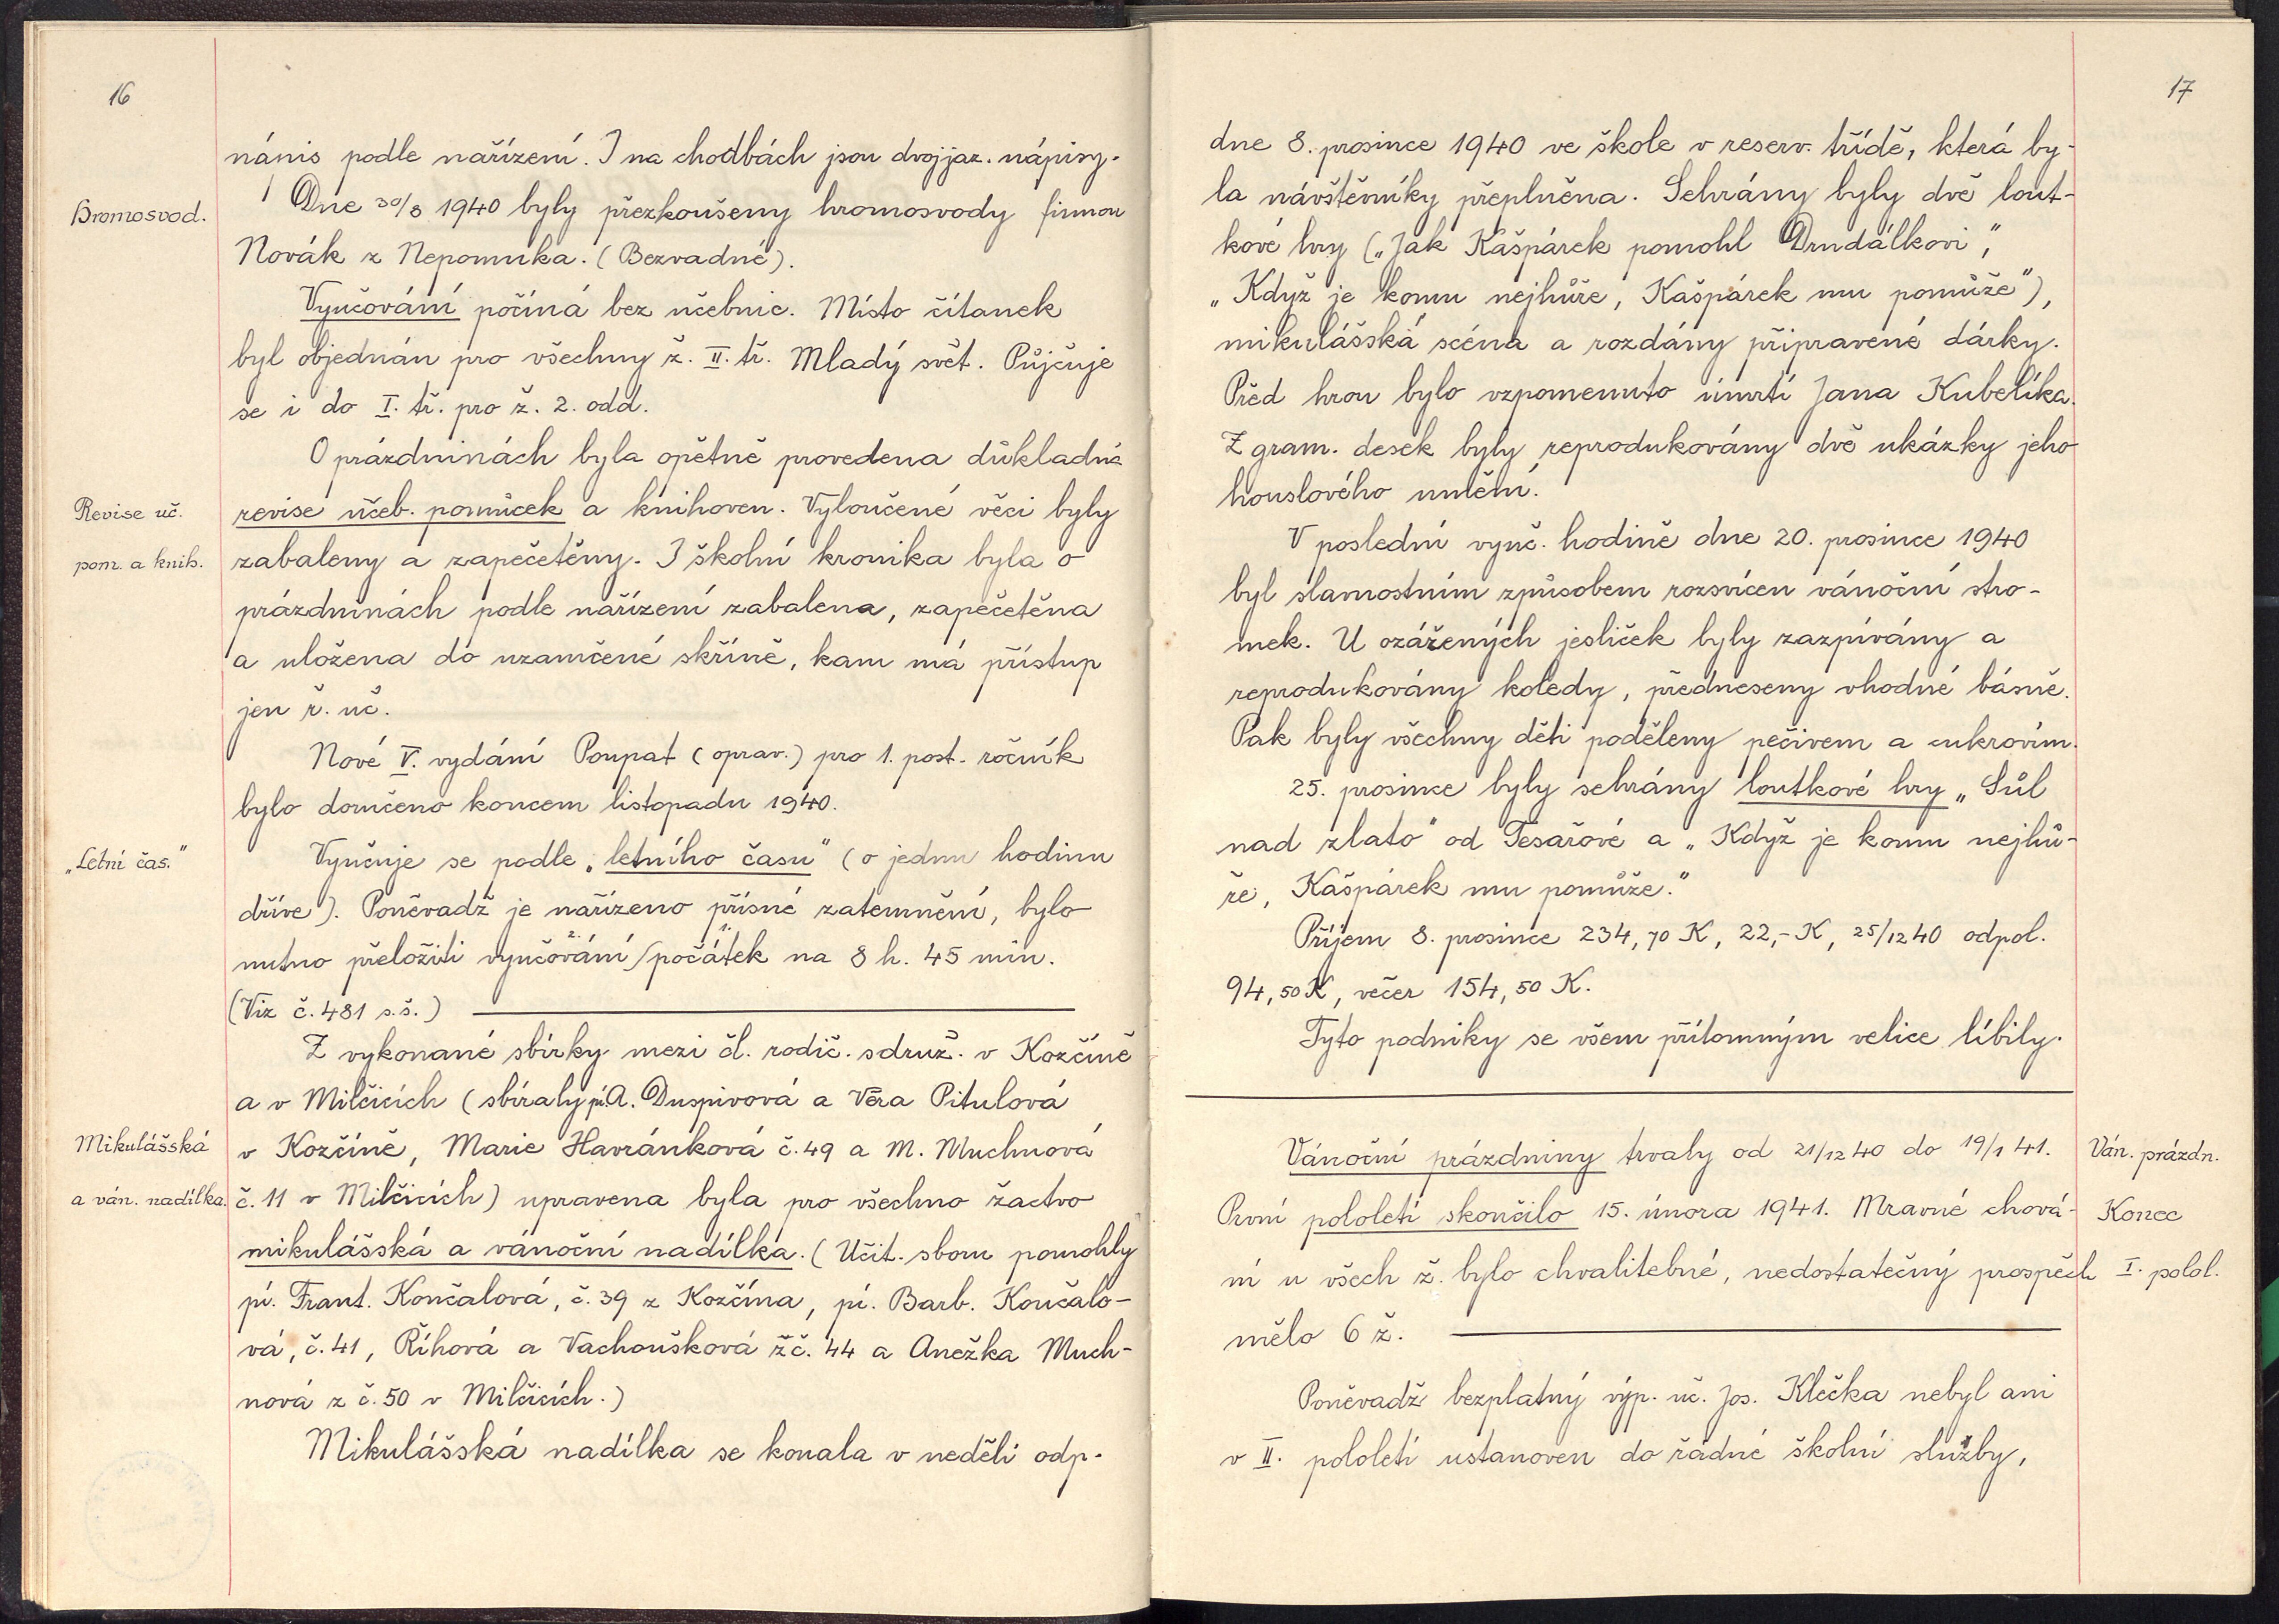 16
nápis podle nařízení. I na chodbách jsou dvojjaz. nápisy.
Hromosvod.
Dne 30/8 1940 byly přezkoušeny hromosvody firmou
Novák z Nepomuka. (Bezvadné).
Vyučování počíná bez učebnic. Místo čítanek
byl objednán pro všechny ž. II. tř. Mladý svět. Půjčuje
se i do I. tř. pro ž. 2. odd.
O prázdninách byla opětně provedena důkladná
Revise uč.
revise učeb. pomůcek a knihoven. Vyloučené věci byly
pom. a knih.
zabaleny a zapečetěny. I školní kronika byla o
prázdninách podle nařízení zabalena, zapečetěna
a uložena do uzamčené skříně, kam má přístup
jen ř. uč.
Nové V. vydání Poupat (oprav.) pro 1. post. ročník
bylo doručeno koncem listopadu 1940.
„Letní čas."
Vyučuje se podle „letního času" (o jednu hodinu
dříve). Poněvadž je nařízeno přísné zatemnění, bylo
nutno přeložiti vyučování 2. / počátek 1. na 8 h. 45 min.
(Viz č. 481 s.š.)
Z vykonané sbírky mezi čl. rodič. sdruž. v Kozčíně
a v Milčicích (sbíraly pí. A. Duspivová a Věra Pitulová
Mikulášská
v Kozčíně, Marie Havránková č. 49 a M. Muchnová
a ván. nadílka.
č. 11 v Milčicích) upravena byla pro všechno žactvo
mikulášská a vánoční nadílka. (Učit. sboru pomohly
pí. Frant. Končalová, č. 39 z Kozčína, pí. Barb. Končalo-
vá, č. 41, Říhová a Vachoušková z č. 44 a Anežka Much-
nová z č. 50 v Milčicích.)
Mikulášská nadílka se konala v neděli odp.
17
dne 8. prosince 1940 ve škole v reserv. třídě, která by-
la návštěvníky přeplněna. Sehrány byly dvě lout-
kové hry („Jak Kašpárek pomohl Drndálkovi",
„Když je komu nejhůře, Kašpárek mu pomůže"),
mikulášská scéna a rozdány připravené dárky.
Před hrou bylo vzpomenuto úmrtí Jana Kubelíka.
Z gram. desek byly reprodukovány dvě ukázky jeho
houslového umění.
V poslední vyuč. hodině dne 20. prosince 1940
byl slavnostním způsobem rozsvícen vánoční stro-
mek. U ozářených jesliček byly zazpívány a
reprodukovány koledy, předneseny vhodné básně.
Pak byly všechny děti poděleny pečivem a cukrovím.
25. prosince byly sehrány loutkové hry „Sůl
nad zlato" od Tesařové a „Když je komu nejhů-
ře, Kašpárek mu pomůže."
Příjem 8. prosince 234,70 K, 22,- K, 25/12 40 odpol.
94,50 K, večer 154,50 K.
Tyto podniky se všem přítomným velice líbily.
Vánoční prázdniny trvaly od 21/12 40 do 19/1 41.
Ván. prázdn.
První pololetí skončilo 15. února 1941. Mravné chová-
Konec
ní u všech ž. bylo chvalitebné, nedostatečný prospěch
I. polol.
mělo 6 ž.
Poněvadž bezplatný výp. uč. Jos. Klečka nebyl ani
v II. pololetí ustanoven do řádné školní služby,